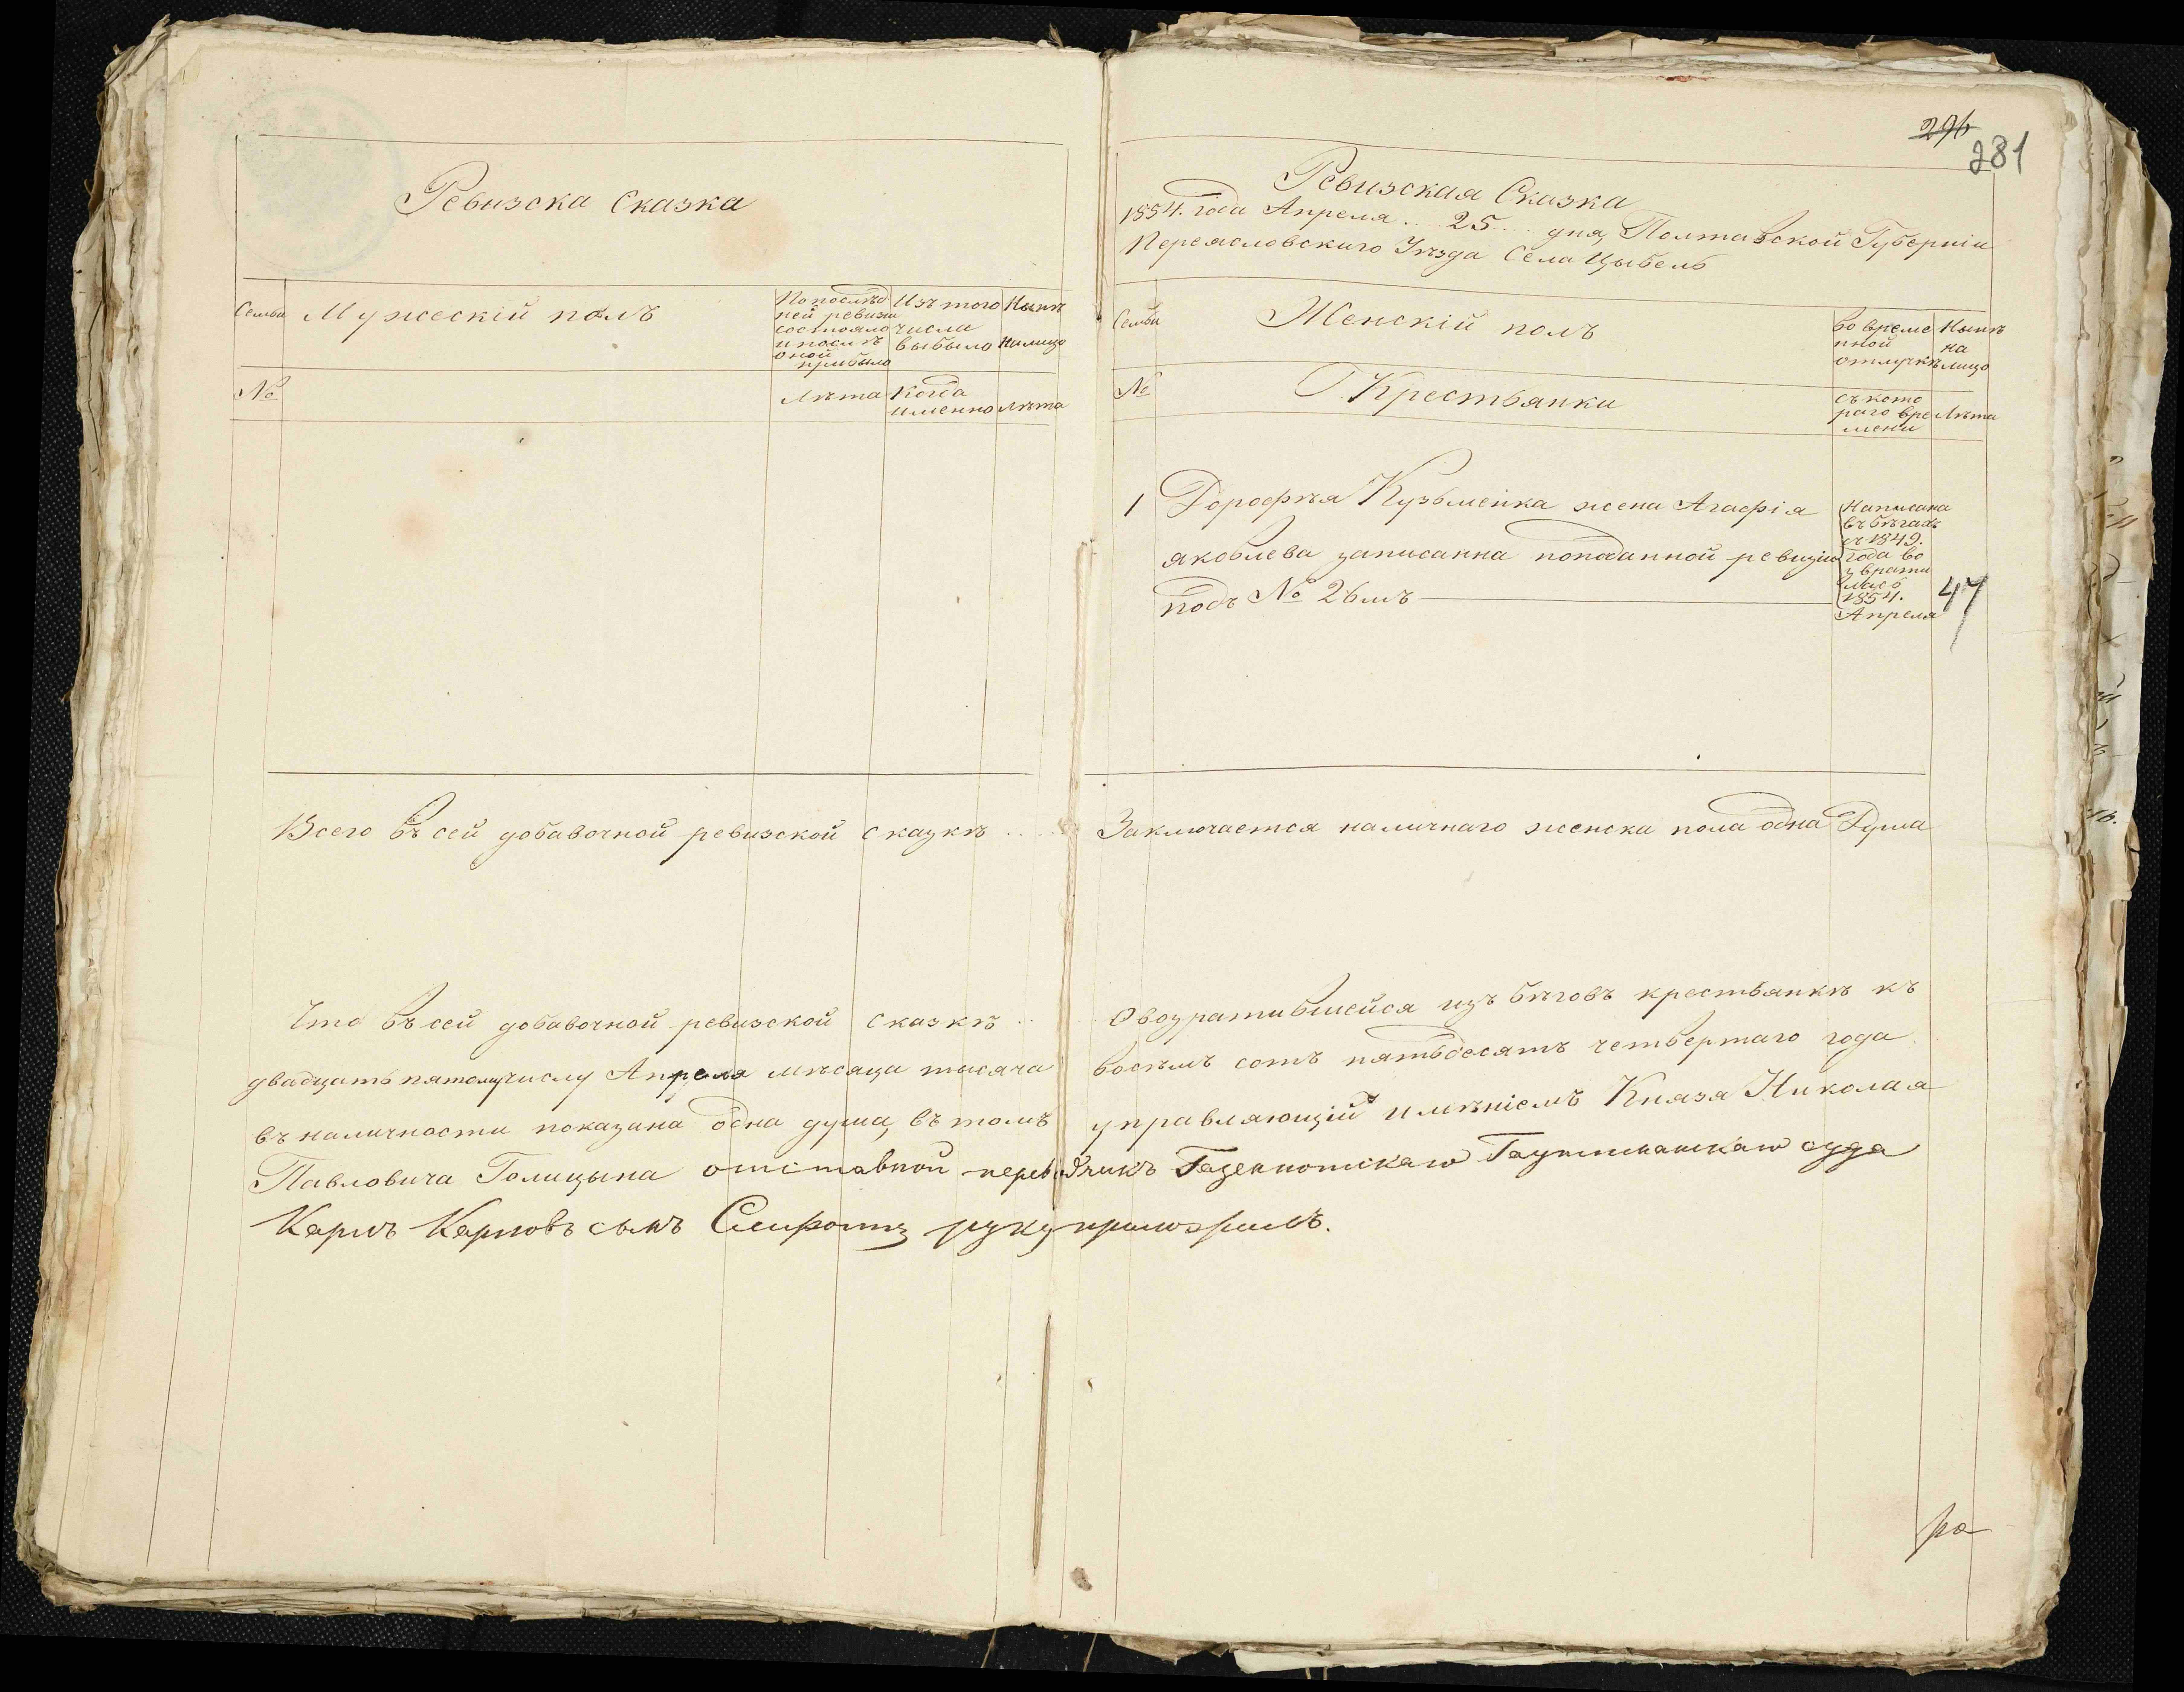 Ревизска Сказка
Семьи
Мужескій полъ
По послѣд
ней ревизіи
состояло
и послѣ
оной
прибыло
Изъ того
числа
выбыло
Нынѣ
налицо
№
Лѣта
Когда
именно
Лѣта
Всего въ сей добавочной ревизской сказкѣ
Что въ сей добавочной ревизской сказкѣ
двадцать пятому числу Апреля мѣсяца тысяча
въ наличности показана одна душа, въ томъ
296
281
Ревизская Сказка
1854. года Апреля .. 25 .... дня, Полтавской Губерніи
Переясловскаго Уѣзда Села Цыбель
Семьи
Женскій полъ
во време
нной
отлучкѣ
Нынѣ
на
лицо
№
Крестьянки
съ кото
раго вре
мени
Лѣта
1
Дорофѣя Кузьменка жена Агафія
яковлева записанна поподанной ревизіи
подъ № 26мъ
Написана
въ бѣгахъ
съ 1849.
года во
зврати
лась
1854.
Апреля
47
Заключается наличнаго женска пола одна Душа
Овозратившейся изъ бѣговъ крестьянкѣ къ
восѣмъ сотъ пятьдесятъ четвертаго года
управляющій имѣніемъ Князя Николая
Павловича Голицына отставной переводчикъ суда
Карлъ Карловъ сынъ руку приложилъ.
ра